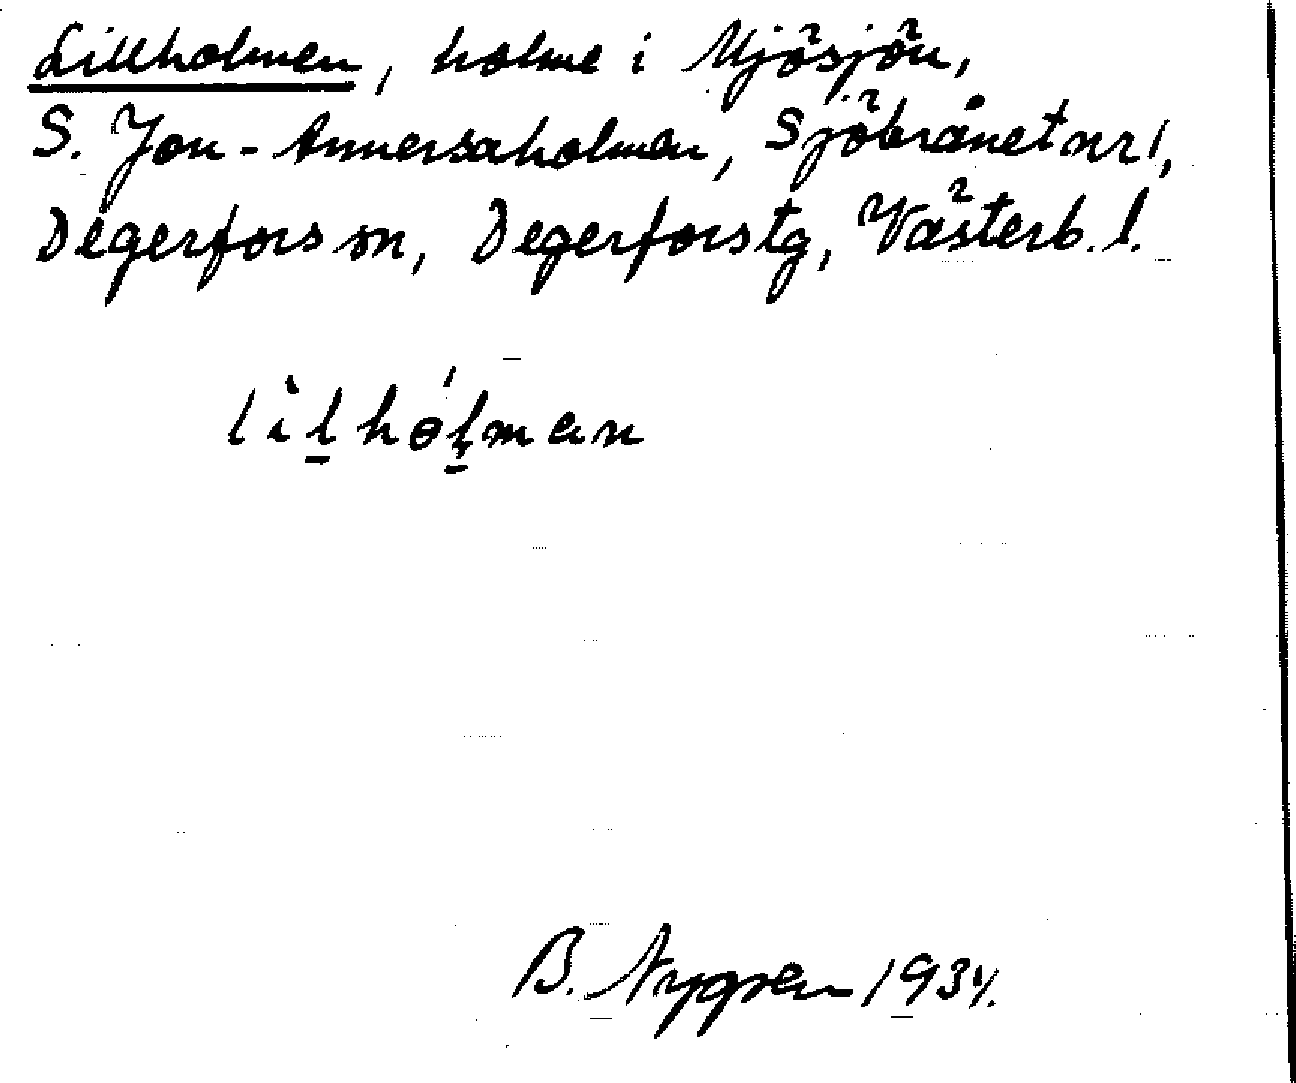 Lillholmen, holme i Mjösjön,
S. Jon-Annersaholmen, Sjöbrånet nr 1,
Degerfors sn, Degerfors tg, Västerb. l.
lìlhólman
B. Nygren 1934.